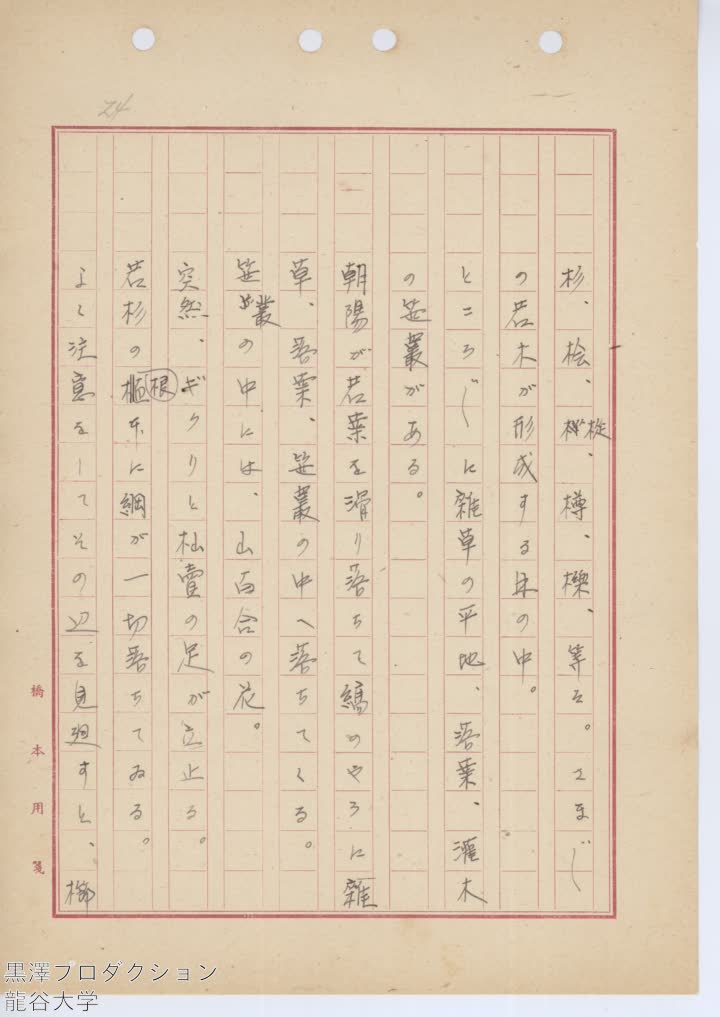 24
杉、桧、樅、樽、欅、等々。さまざま〴〵
の若木が形成する林の中。
ところ〴〵に雑草の平地、落葉、灌木
の笹叢がある。
朝陽が若葉を滑り落ちて縞のやうに雑
草、落葉、笹叢の中へ落ちてくる。
笹叢の中には、山百合の花。
突然、ギクリと杣賣の足が立止る。
若杉の根本に綱が一切落ちてゐる。
よく注意をしてその辺を見廻すと、櫛
橋本用箋
黒澤プロダクション
龍谷大学